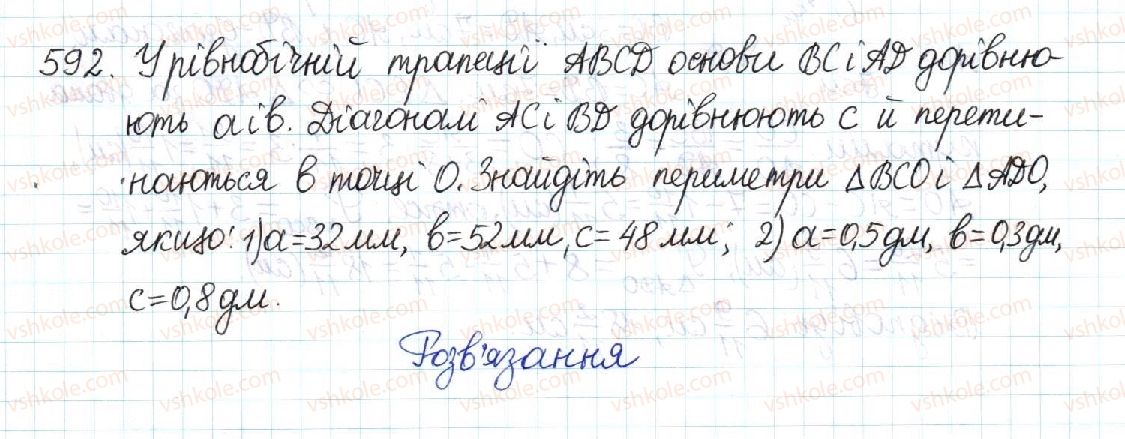 592. У рівнобічній трапеції ABCD основи BC і AD дорівню-
ють a і b. Діагоналі AC і BD дорівнюють c й перети-
наються в точці O. Знайдіть периметри △BCO і △ADO,
якщо: 1) a=32мм, b=52мм, c=48мм; 2) a=0,5дм, b=0,3дм,
c=0,8дм.
Розв'язання